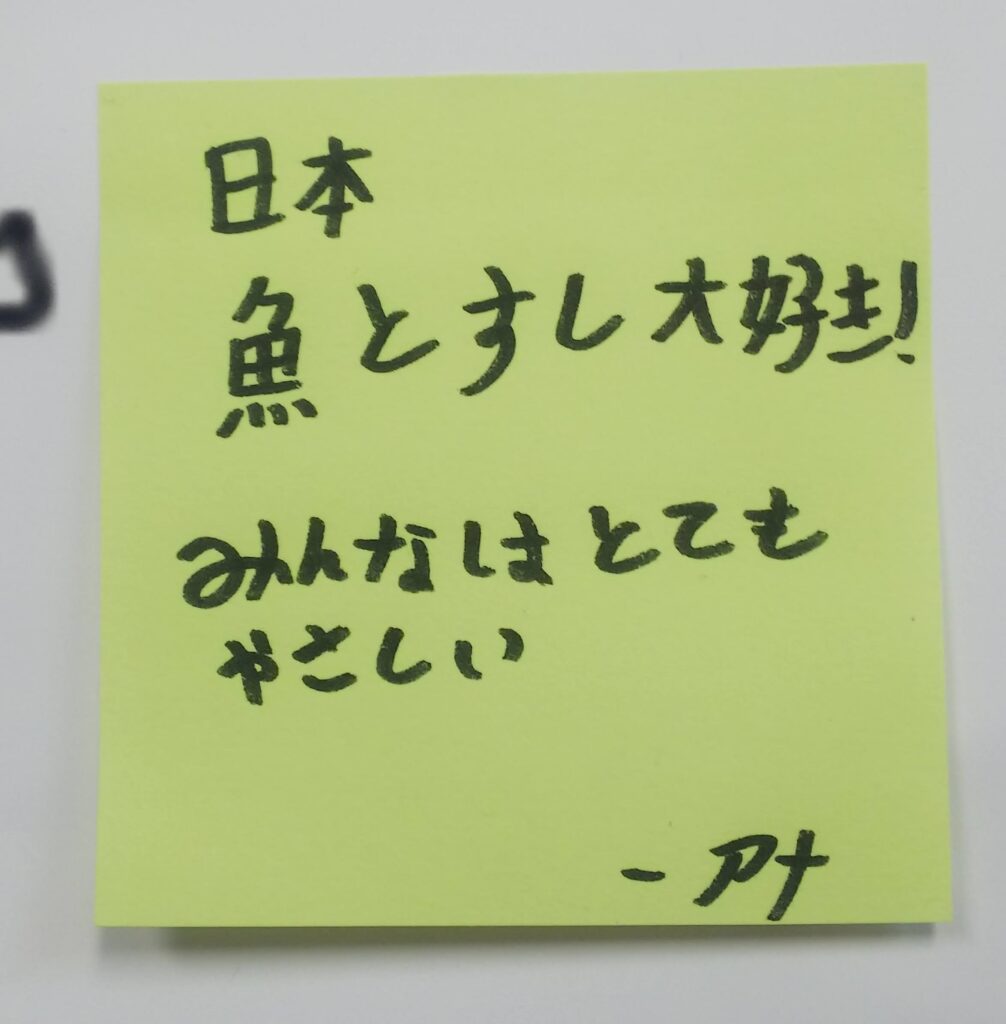 日本
魚とすし大好き!
みんなはとても
やさしい
- アナ